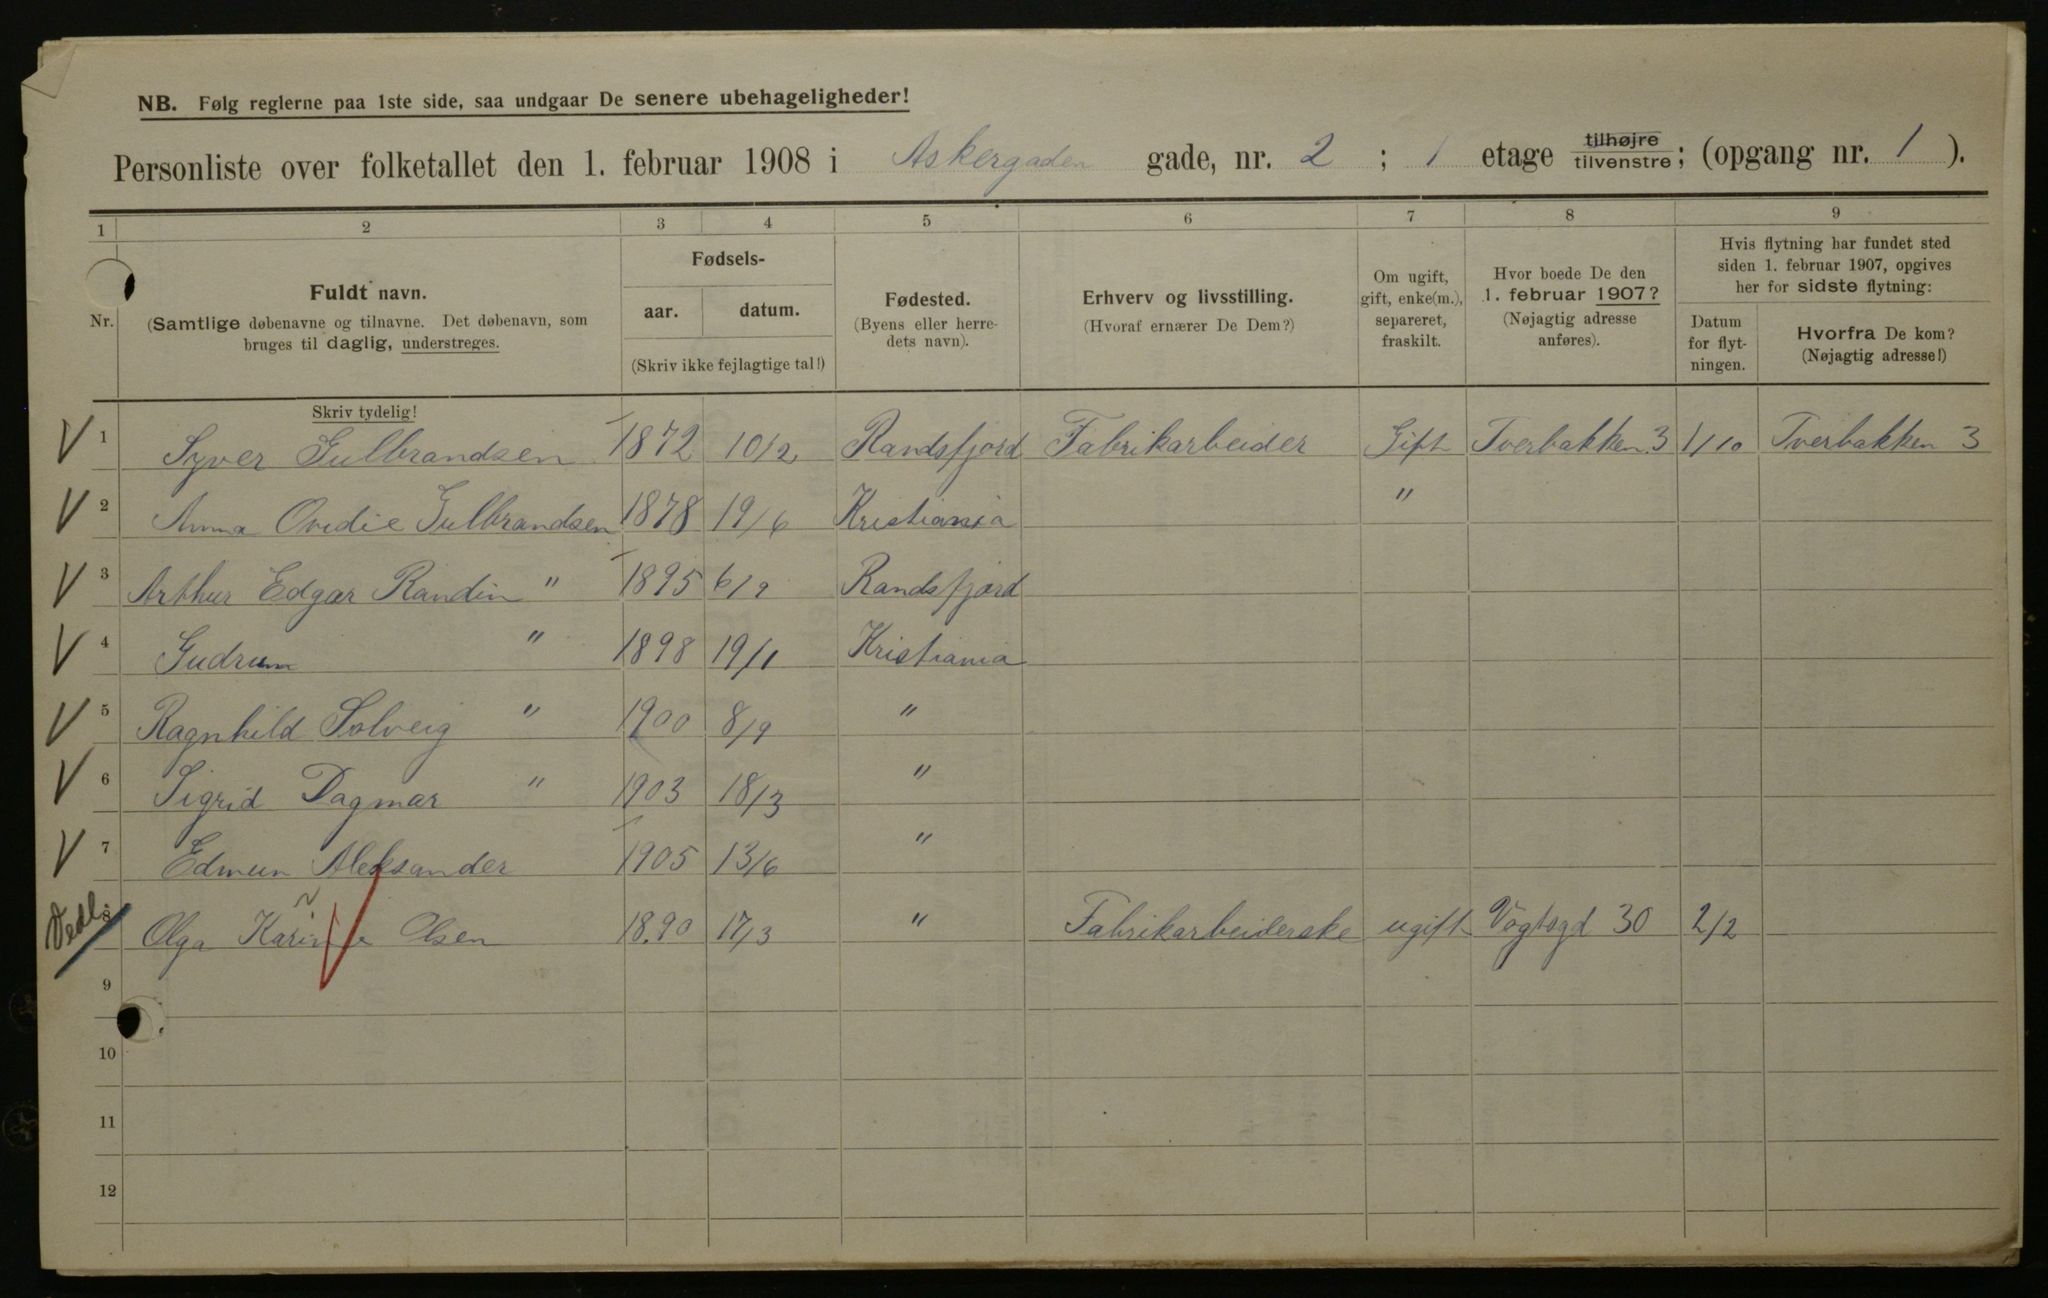 NB. Følg reglerne paa 1ste side, saa undgaar De senere ubehageligheder!
Personliste over folketallet den 1. februar 1908 i Askergaden gade, nr. 2 ; 1 etage tilhøjre tilvenstre; (opgang nr. 1 ).
1 2 3 4 5 6 7 8 9
Nr.
Fuldt navn.
(Samtlige døbenavne og tilnavne. Det døbenavn, som
bruges til daglig, understreges.
Skriv tydelig!
Fødsels-
aar. datum.
(Skriv ikke fejlagtige tal!)
Fødested.
(Byens eller herre-
dets navn).
Erhverv og livsstilling.
(Hvoraf ernærer De Dem?)
Om ugift,
gift, enke(m.),
separeret,
fraskilt.
Hvor boede De den
1. februar 1907?
(Nøjagtig adresse
anføres).
Hvis flytning har fundet sted
siden 1. februar 1907, opgives
her for sidste flytning:
Datum
for flyt-
ningen.
Hvorfra De kom?
(Nøjagtig adresse!)
V 1 Syver Gulbrandsen 1872 10/2 Randsfjord Fabrikarbeider Gift Tverbakken 3 1/10 Tverbakken 3
V 2 Anna Ovidie Gulbrandsen 1878 19/6 Kristiania "
V 3 Arthur Edgar Randin " 1895 6/9 Randsfjord
V 4 Gudrun " 1898 19/1 Kristiania
V 5 Ragnhild Solveig " 1900 8/9 "
V 6 Sigrid Dagmar " 1903 18/3 "
V 7 Edmun Aleksander 1905 13/6 "
Vedl. 8 Olga Karine Olsen 1890 17/3 " Fabrikarbeiderske ugift Vogtsgd 30 2/2
9
10
11
12